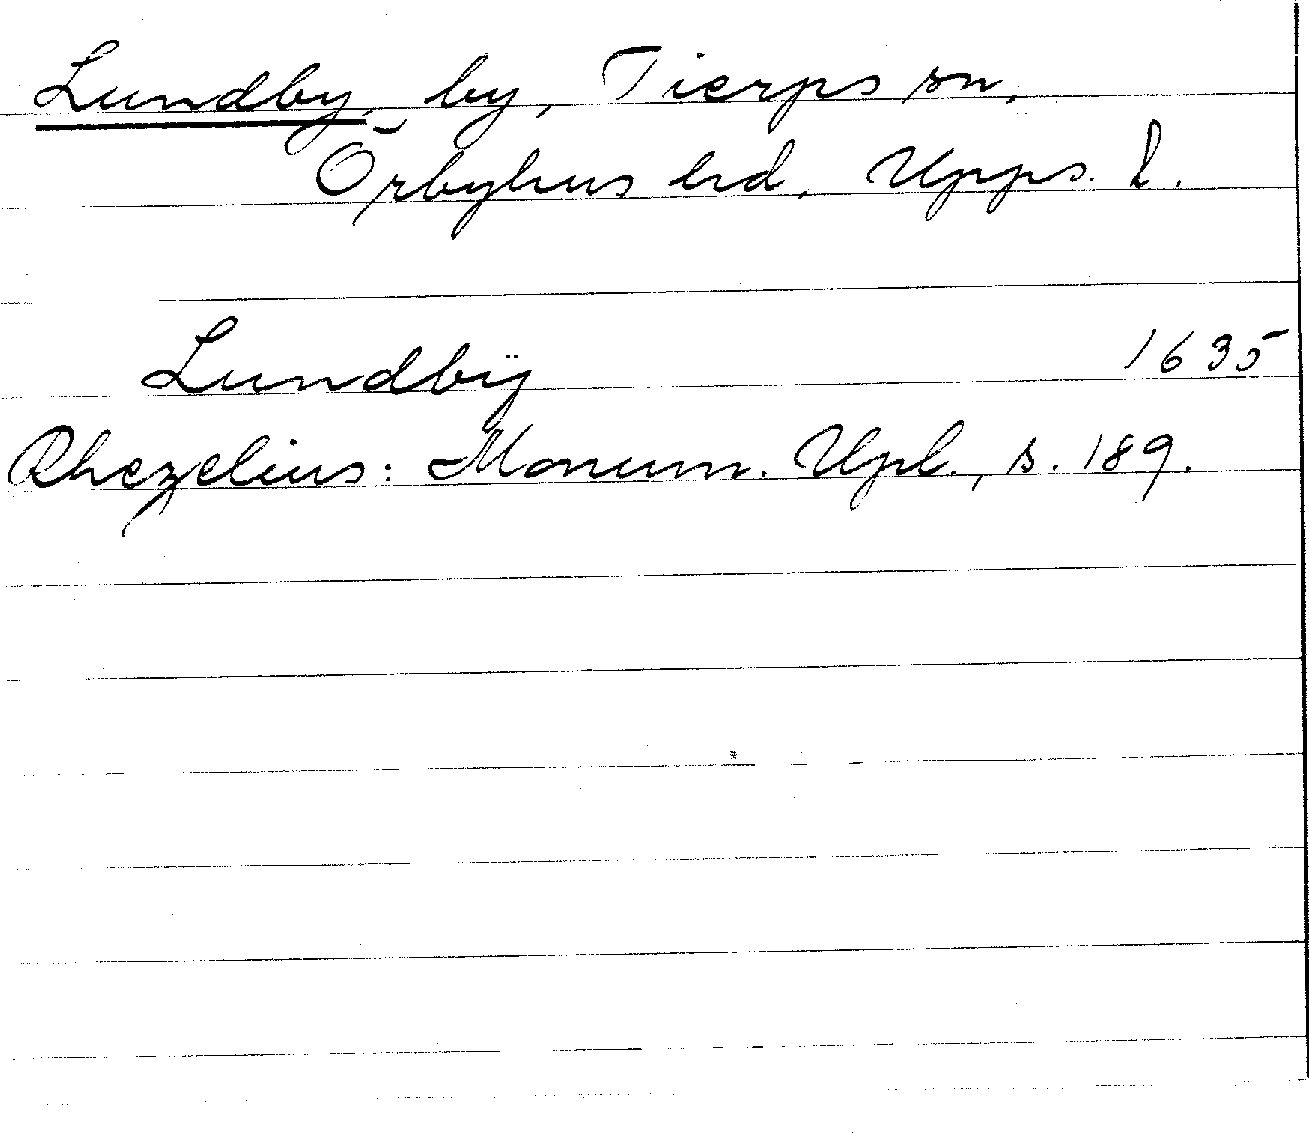 Lundby, by, Tierps sn,
Örbyhus hd, Upps. l.
Lundbÿ 1635
Rhezelius: Monum. Upl., s. 189.